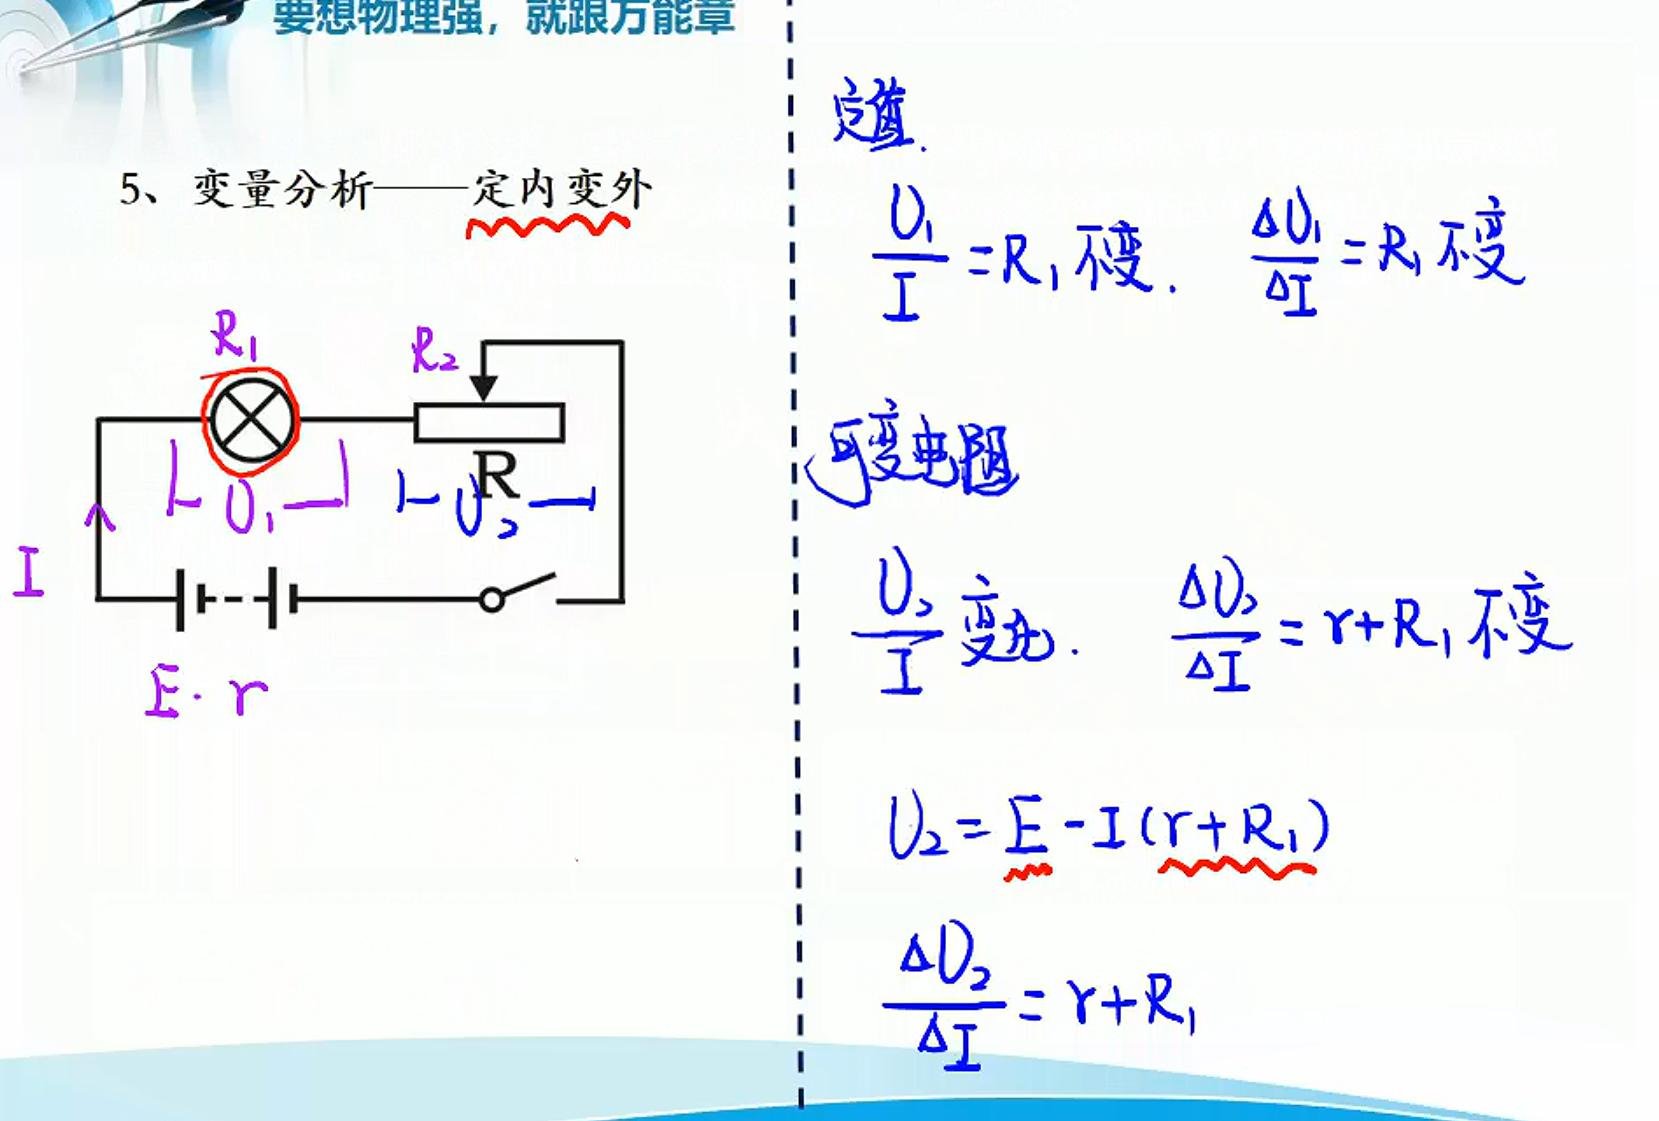 要想物理强，就跟万能章
5、变量分析——定内变外
R₁
R₂
R
U₁
U₂
I
E. r
定值.
U₁/I = R₁ 不变. ΔU₁/ΔI = R₁ 不变
可变电阻
U₂/I 变化. ΔU₂/ΔI = r+R₁ 不变
U₂ = E - I(r+R₁)
ΔU₂/ΔI = r+R₁